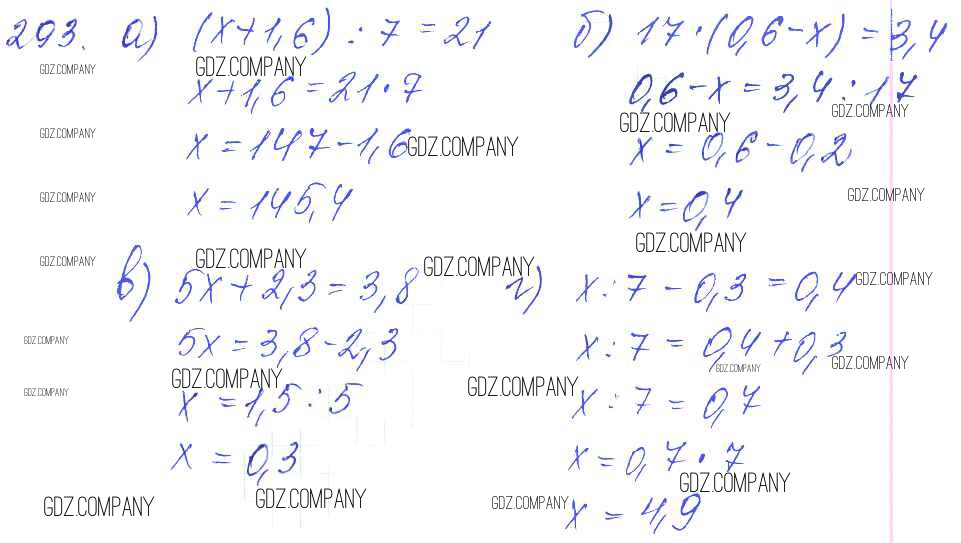 293. а) (x+1,6) : 7 = 21
GDZ.COMPANY GDZ.COMPANY
x+1,6=21·7
GDZ.COMPANY
x=147-1,6 GDZ.COMPANY
GDZ.COMPANY
x=145,4
б) 17·(0,6-x) = 3,4
0,6-x = 3,4 : 17
GDZ.COMPANY GDZ.COMPANY
x = 0,6-0,2
GDZ.COMPANY
x=0,4
GDZ.COMPANY
GDZ.COMPANY GDZ.COMPANY GDZ.COMPANY
в) 5x+2,3=3,8
GDZ.COMPANY
5x=3,8-2,3
GDZ.COMPANY
GDZ.COMPANY
x=1,5:5
x=0,3
GDZ.COMPANY GDZ.COMPANY
г) x:7-0,3=0,4 GDZ.COMPANY
x:7=0,4+0,3
GDZ.COMPANY GDZ.COMPANY
GDZ.COMPANY
x:7=0,7
x=0,7·7
GDZ.COMPANY
GDZ.COMPANY
x=4,9